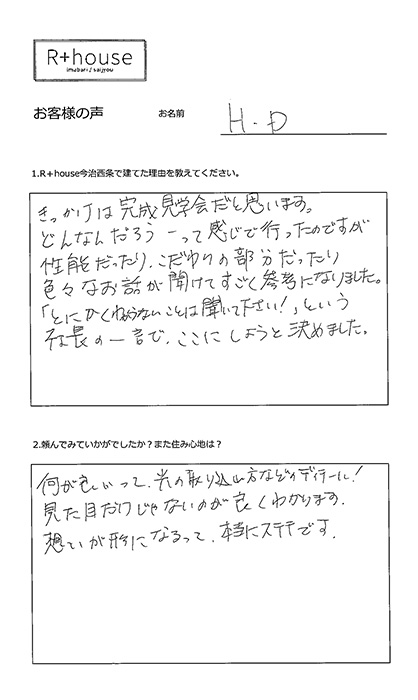 R+house
imabari / saijyou
お客様の声
お名前
H.D
1.R+house今治西条で建てた理由を教えてください。
きっかけは完成見学会だと思います。
どんなんだろうーって感じで行ったのですが
性能だったり、こだわりの部分だったり
色々なお話が聞けてすごく参考になりました。
「とにかくわからないことは聞いて下さい!」という
社長の一言で、ここにしようと決めました。
2.頼んでみていかがでしたか?また住み心地は?
何が良いって、光の取り込み方などのディテール!
見た目だけじゃないのが良くわかります。
想いが形になるって、本当にステテです。